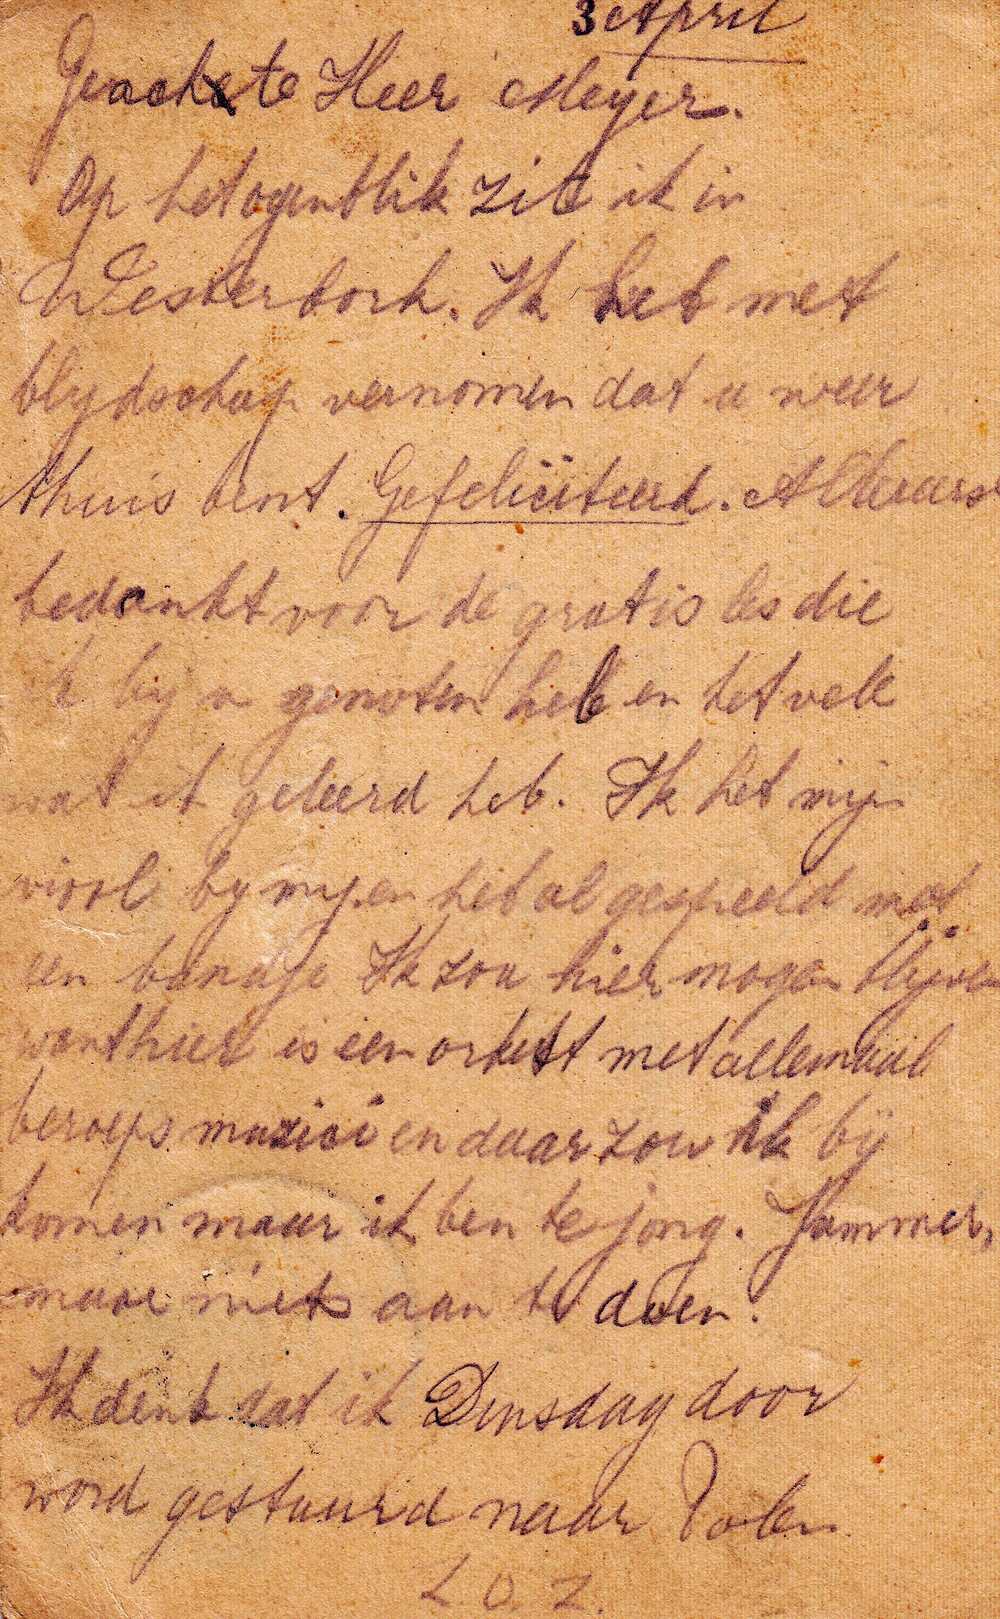 3 April
Geachte Heer Meyer.
Op het ogenblik zit ik in
Westerbork. Ik heb met
blydschap vernomen dat u weer
thuis bent. Gefeliciteerd. Allereerst
bedankt voor de gratis les die
ik by u genoten heb en het vele
wat ik geleerd heb. Ik heb mijn
viool by my en heb al gespeeld met
een bandje Ik zou hier mogen blijven
want hier is een orkest met allemaal
beroeps muzici en daar zou ik bij
komen maar ik ben te jong. Jammer,
maar niets aan te doen.
Ik denk dat ik Dinsdag door
word gestuurd naar Polen
Z.O.Z.